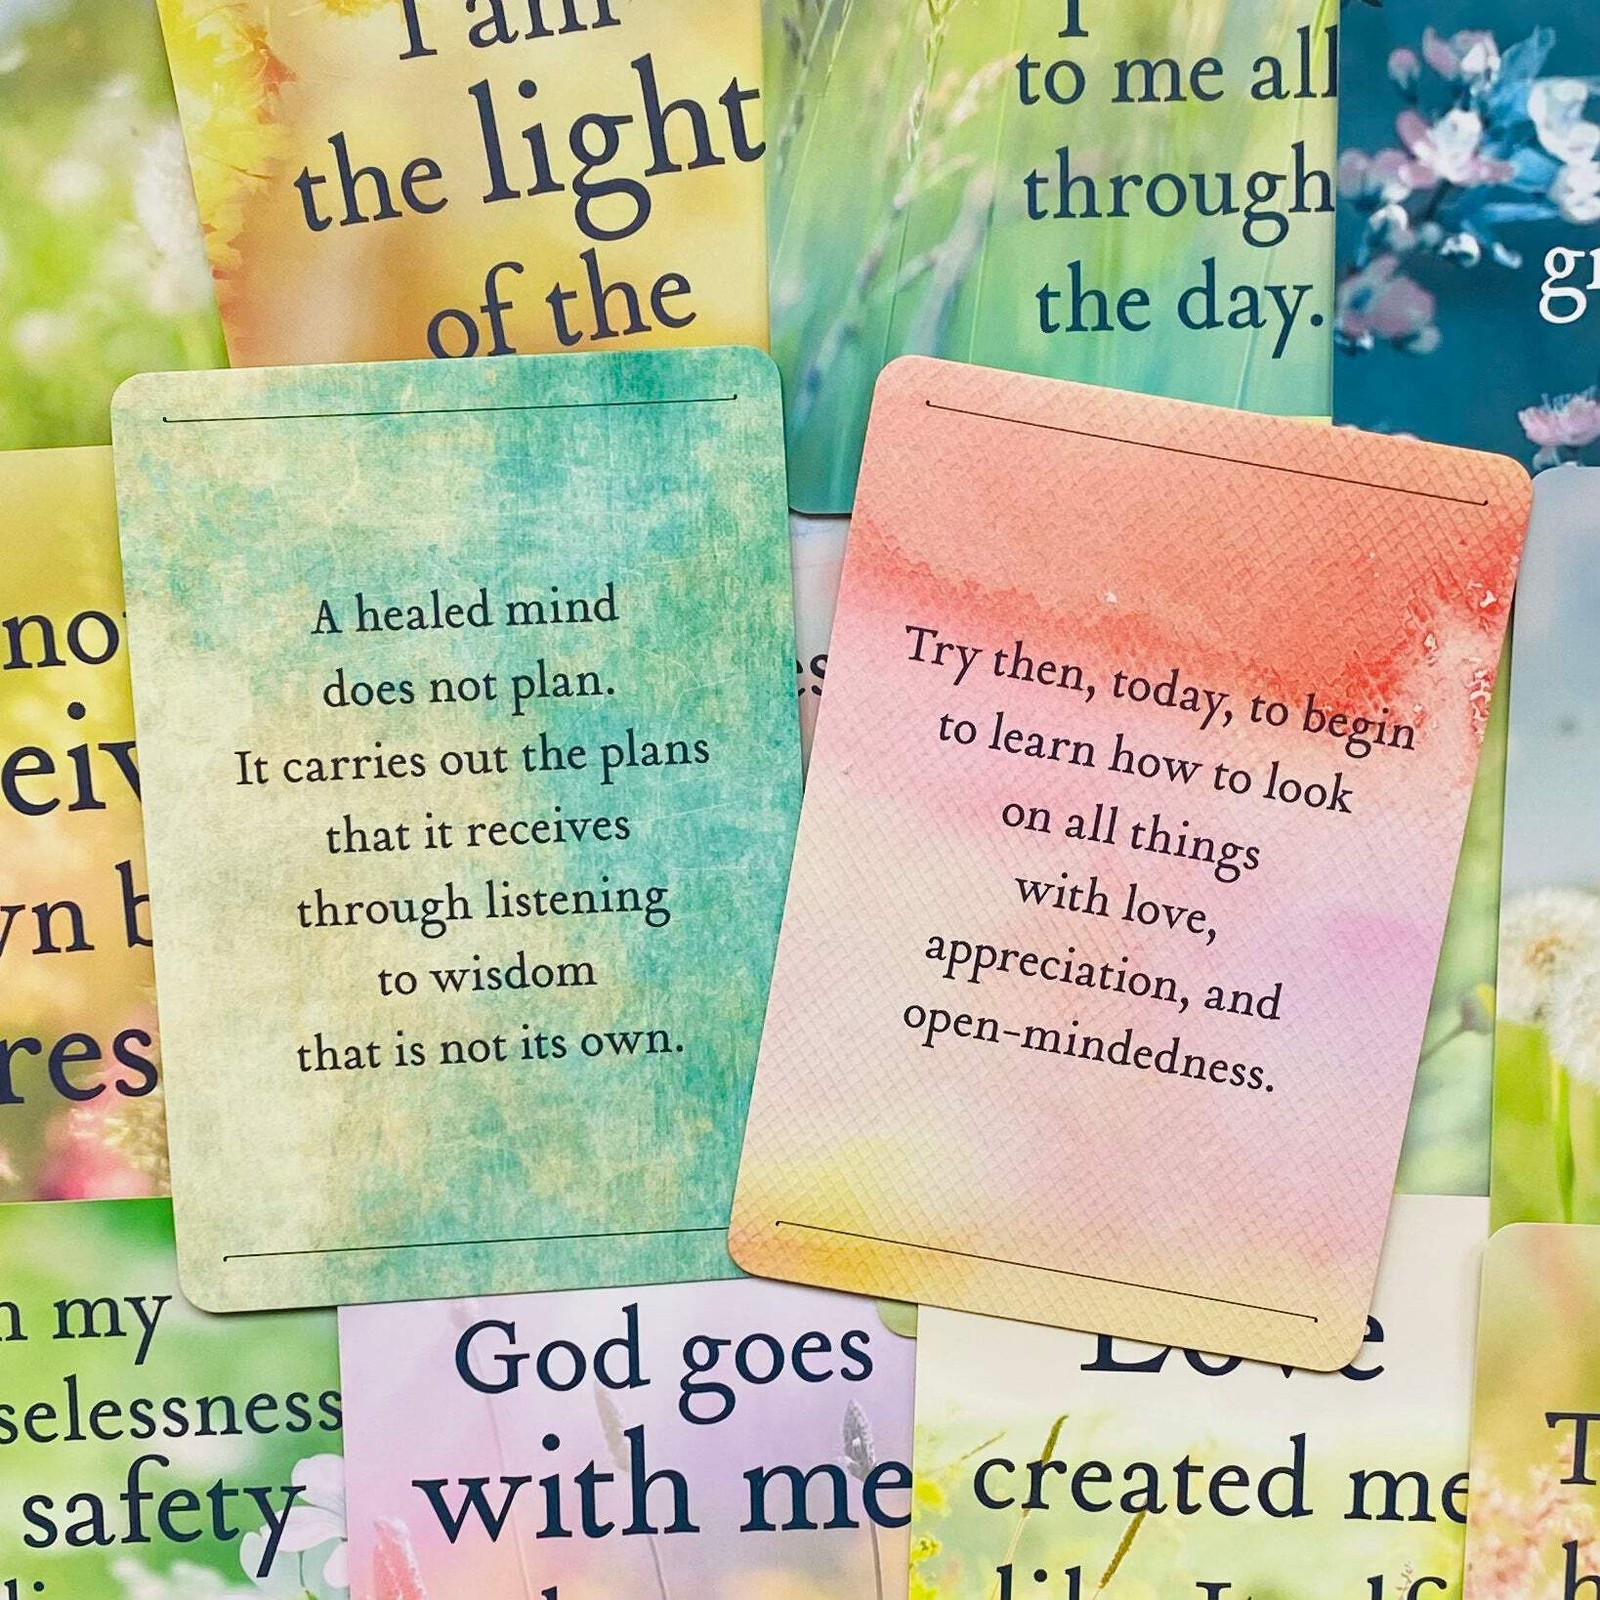 I am
the light
of the
to me all
through
the day.
A healed mind
does not plan.
It carries out the plans
that it receives
through listening
to wisdom
that is not its own.
Try then, today, to begin
to learn how to look
on all things
with love,
appreciation, and
open-mindedness.
my
safety
God goes
with me
Love
created me